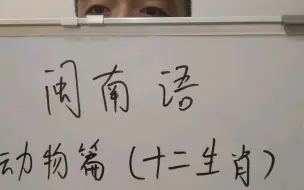 闽南语
动物篇(十二生肖)